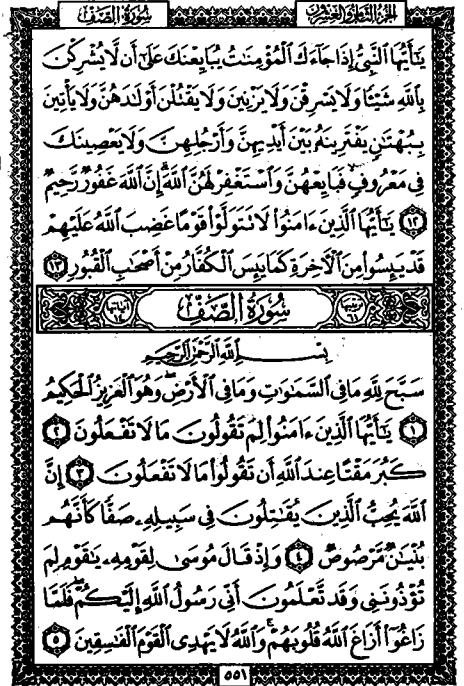 سُورَةُ الصَّفِّ
الجُزءُ الثَّامِنُ وَالعِشْرُونَ
يَٰٓأَيُّهَا ٱلنَّبِىُّ إِذَا جَآءَكَ ٱلْمُؤْمِنَٰتُ يُبَايِعْنَكَ عَلَىٰٓ أَن لَّا يُشْرِكْنَ
بِٱللَّهِ شَيْـًٔا وَلَا يَسْرِقْنَ وَلَا يَزْنِينَ وَلَا يَقْتُلْنَ أَوْلَٰدَهُنَّ وَلَا يَأْتِينَ
بِبُهْتَٰنٍ يَفْتَرِينَهُۥ بَيْنَ أَيْدِيهِنَّ وَأَرْجُلِهِنَّ وَلَا يَعْصِينَكَ
فِى مَعْرُوفٍ فَبَايِعْهُنَّ وَٱسْتَغْفِرْ لَهُنَّ ٱللَّهَ إِنَّ ٱللَّهَ غَفُورٌ رَّحِيمٌ
١٢ يَٰٓأَيُّهَا ٱلَّذِينَ ءَامَنُوا۟ لَا تَتَوَلَّوْا۟ قَوْمًا غَضِبَ ٱللَّهُ عَلَيْهِمْ
قَدْ يَئِسُوا۟ مِنَ ٱلْءَاخِرَةِ كَمَا يَئِسَ ٱلْكُفَّارُ مِنْ أَصْحَٰبِ ٱلْقُبُورِ ١٣
سُورَةُ الصَّفِّ
بِسْمِ ٱللَّهِ ٱلرَّحْمَٰنِ ٱلرَّحِيمِ
سَبَّحَ لِلَّهِ مَا فِى ٱلسَّمَٰوَٰتِ وَمَا فِى ٱلْأَرْضِ وَهُوَ ٱلْعَزِيزُ ٱلْحَكِيمُ
١ يَٰٓأَيُّهَا ٱلَّذِينَ ءَامَنُوا۟ لِمَ تَقُولُونَ مَا لَا تَفْعَلُونَ ٢
كَبُرَ مَقْتًا عِندَ ٱللَّهِ أَن تَقُولُوا۟ مَا لَا تَفْعَلُونَ ٣ إِنَّ
ٱللَّهَ يُحِبُّ ٱلَّذِينَ يُقَٰتِلُونَ فِى سَبِيلِهِۦ صَفًّا كَأَنَّهُم
بُنْيَٰنٌ مَّرْصُوصٌ ٤ وَإِذْ قَالَ مُوسَىٰ لِقَوْمِهِۦ يَٰقَوْمِ لِمَ
تُؤْذُونَنِى وَقَد تَّعْلَمُونَ أَنِّى رَسُولُ ٱللَّهِ إِلَيْكُمْ فَلَمَّا
زَاغُوٓا۟ أَزَاغَ ٱللَّهُ قُلُوبَهُمْ وَٱللَّهُ لَا يَهْدِى ٱلْقَوْمَ ٱلْفَٰسِقِينَ ٥
٥٥١